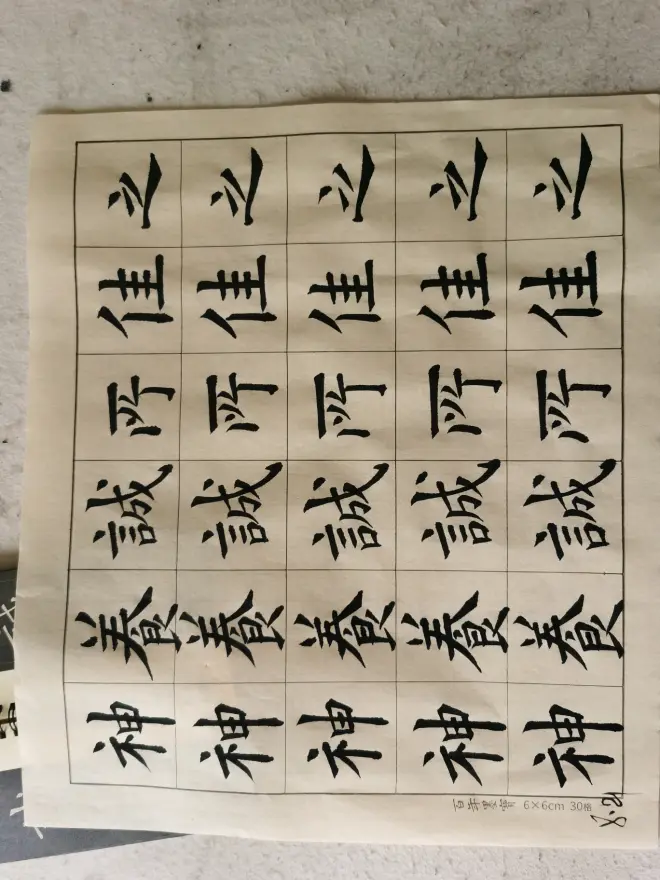 之佳所誠養神
之佳所誠養神
之佳所誠養神
之佳所誠養神
之佳所誠養神
6×6cm 30格
8.21